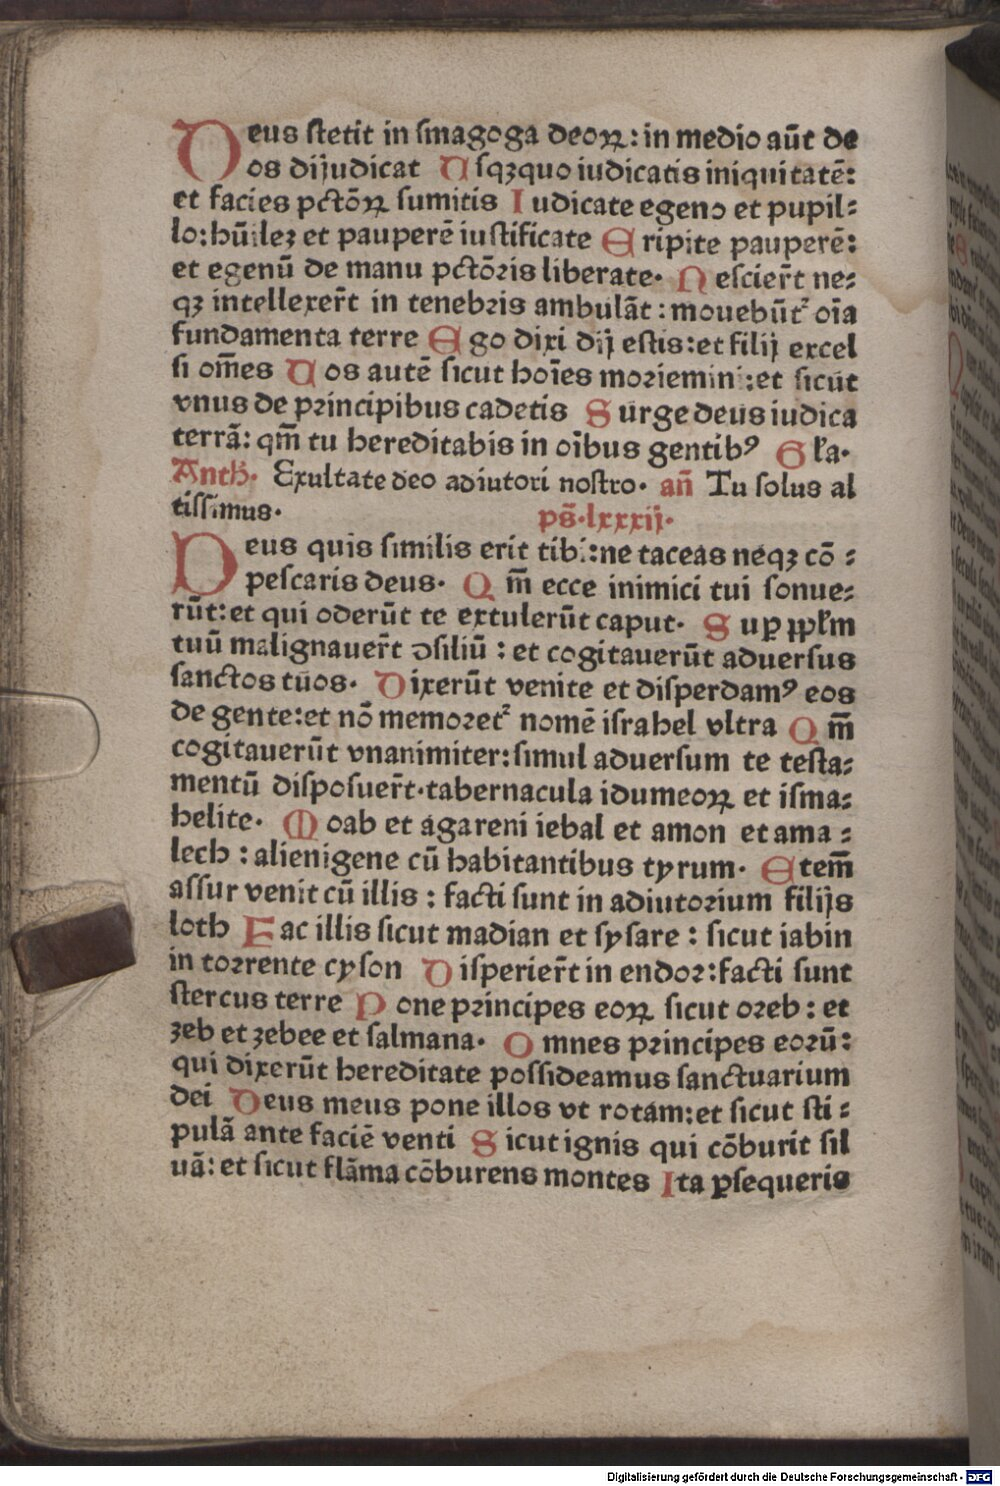 Deus ſtetit in ſinagoga deoꝝ: in medio aūt de
os dijudicat Uſqꝫquo iudicatis iniquitatē:
et facies pctōꝝ ſumitis Iudicate egeno et pupil⸗
lo: hūilez et pauperē iuſtificate Eripite pauperē:
et egenū de manu pctōꝛis liberate· Neſcier̄t ne⸗
qꝫ intellexer̄t in tenebꝛis ambulāt : mouebūt᷑ oīa
fundamenta terre Ego dixi dij eſtis: et filij excel
ſi om̄es Uos autē ſicut hoīes moꝛiemini: et ſicut
vnus de pꝛincipibus cadetis Surge deus iudica
terrā: qm̄ tu hereditabis in oībus gentibꝰ Gl̄a·
Anth̄· Exultate deo adiutori noſtro· an̄ Tu ſolus al
tiſſimus· pſ̄·lxxxij·
Deus quis ſimilis erit tibi: ne taceas neqꝫ cō⸗
peſcaris deus· Qm̄ ecce inimici tui ſonue⸗
rūt: et qui oderūt te extulerūt caput· Suꝑ ppl̄m
tuū malignauer̄t ↄſiliū : et cogitauerūt aduerſus
ſanctos tuos· Dixerūt venite et diſperdamꝰ eos
de gente: et nō memoꝛet᷑ nomē iſrahel vltra Qm̄
cogitauerūt vnanimiter: ſimul aduerſum te teſta⸗
mentū diſpoſuer̄t· tabernacula idumeoꝝ et iſma⸗
helite· Moab et agareni iebal et amon et ama⸗
lech : alienigene cū habitantibus tyrum· Etem̄
aſſur venit cū illis : facti ſunt in adiutoꝛium filijs
loth Fac illis ſicut madian et ſyſare : ſicut iabin
in toꝛrente cyſon Diſperier̄t in endoꝛ: facti ſunt
ſtercus terre Pone pꝛincipes eoꝝ ſicut oꝛeb : et
ꝫeb et ꝫebee et ſalmana· Omnes pꝛincipes eoꝛū:
qui dixerūt hereditate poſſideamus ſanctuarium
dei Deus meus pone illos vt rotam: et ſicut ſti⸗
pulā ante faciē venti Sicut ignis qui cōburit ſil
uā: et ſicut flāma cōburens montes Ita ꝑſequeris
Digitalisierung gefördert durch die Deutsche Forschungsgemeinschaft - DFG